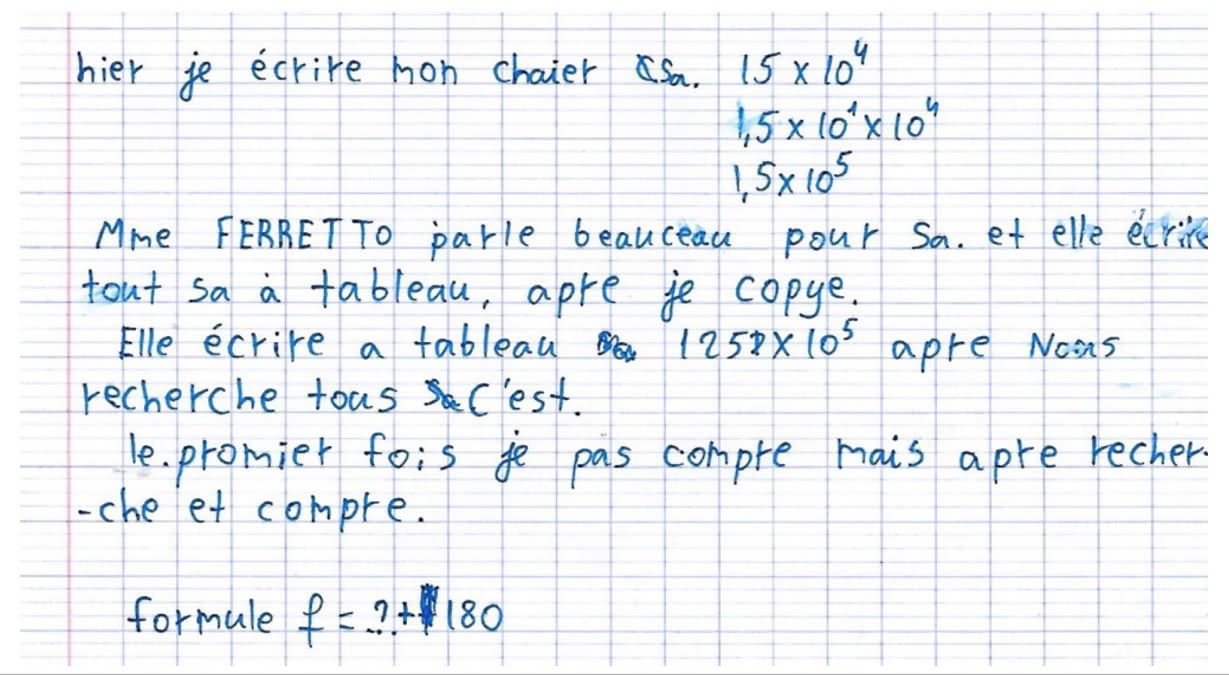 hier je écrire mon chaier Sa. 15 x 10⁴
1,5 x 10¹ x 10⁴
1,5 x 10⁵
Mme FERRETTO parle beauceau pour Sa. et elle écrire
tout sa à tableau, apre je copye.
Elle écrire a tableau 1252 X 10⁵ apre Nous
recherche tous C'est.
le.promier fois je pas compre mais apre recher-
-che et compre.
formule f = ?+180